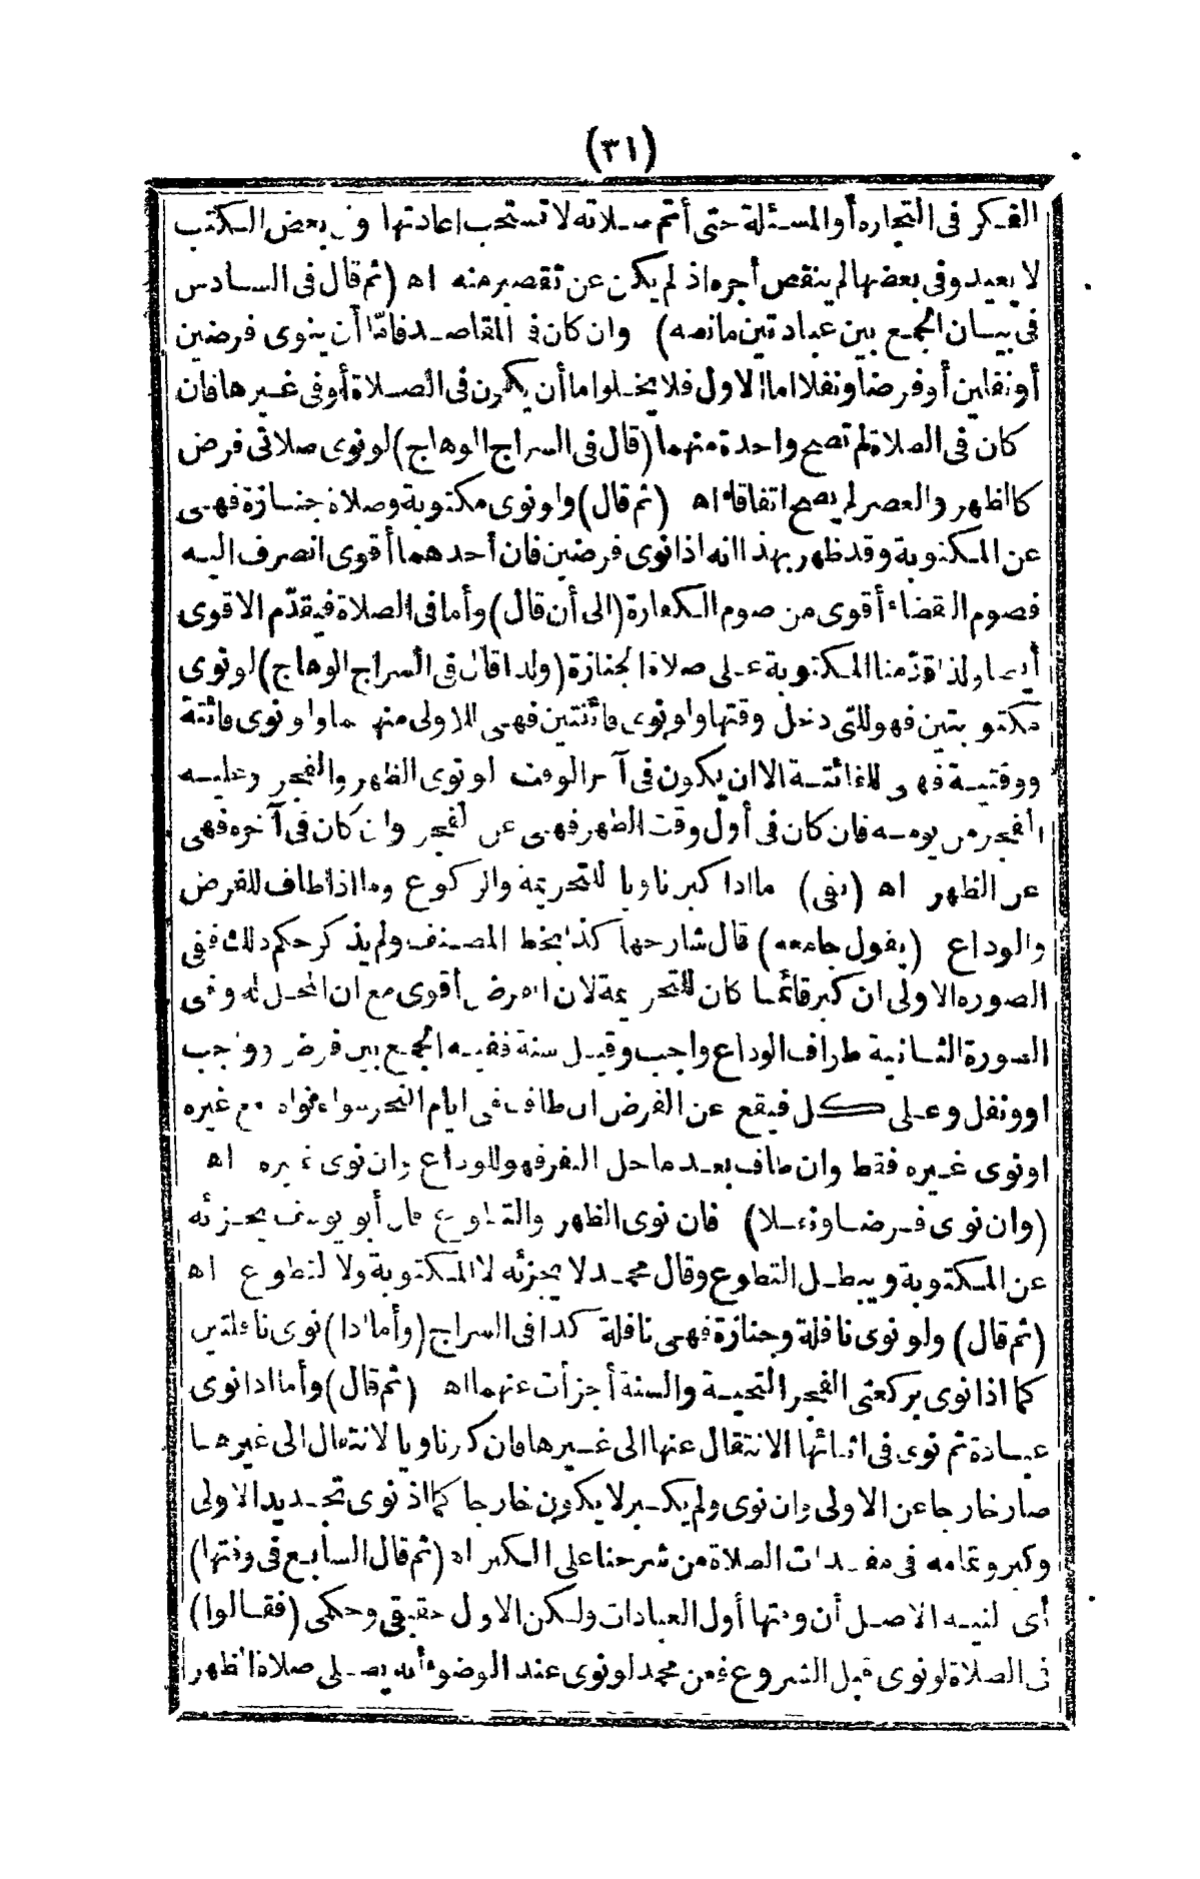 (٣١)
الفكر فى التجاره أو المسئلة حتى أتم صلاته لا تستحب اعادتها وفى بعض الكتب
لا يعيد وفى بعضها لم ينقص أجره اذ لم يكن عن تقصير منه اه (ثم قال فى السادس
فى بيان الجمع بين عبادتين مانصه) وان كان فى المقاصد فامّا أن ينوى فرضين
أو نفلين أو فرضا ونفلا اما الاول فلا يخلوا ما أن يكون فى الصلاة أو فى غيرها فان
كان فى الصلاة لم تصح واحدة منهما (قال فى السراج الوهاج) لو نوى صلاتى فرض
كالظهر والعصر لم يصح اتفاقا اه (ثم قال) ولو نوى مكتوبة وصلاة جنازة فهى
عن المكتوبة وقد ظهر بهذا انه اذا نوى فرضين فان أحدهما أقوى انصرف اليه
فصوم القضاء أقوى من صوم الكفارة (الى أن قال) وأما فى الصلاة فيقدّم الاقوى
أيضا ولذا قدّمنا المكتوبة على صلاة الجنازة (ولذا قال فى السراج الوهاج) لو نوى
مكتوبتين فهو للتى دخل وقتها ولو نوى فائتتين فهى للاولى منهما ولو نوى فائتة
ووقتية فهى للفائتة الا ان يكون فى آخر الوقت لو نوى الظهر والفجر وعليه
الفجر من يومه فان كان فى أول وقت الظهر فهى عن الفجر وان كان فى آخره فهى
عن الظهر اه (بقى) ما اذا كبر ناويا للتحريمة والركوع وما اذا طاف للفرض
والوداع (يقول جامعه) قال شارحها كذا بخط المصنف ولم يذكر حكم ذلك ففى
الصوره الاولى ان كبر قائما كان للتحريمة لان الفرض أقوى مع ان المحل له وفى
الصورة الثانية طواف الوداع واجب وقيل سنة ففيه الجمع بين فرض وواجب
او ونفل وعلى كل فيقع عن الفرض ان طاف فى ايام النحر سواء نواه مع غيره
او نوى غيره فقط وان طاف بعد ما حل النفر فهو للوداع وان نوى غيره اه
(وان نوى فرضا ونفلا) فان نوى الظهر والتطوع قال أبو يوسف يجزئه
عن المكتوبة ويبطل التطوع وقال محمد لا يجزئه لا المكتوبة ولا التطوع اه
(ثم قال) ولو نوى نافلة وجنازة فهى نافلة كذا فى السراج (وأما اذا) نوى نافلتين
كما اذا نوى بركعتى الفجر التحية والسنة أجزأت عنهما اه (ثم قال) وأما اذا نوى
عبادة ثم نوى فى اثنائها الانتقال عنها الى غيرها فان كبر ناويا لانتقال الى غيرها
صار خارجا عن الاولى وان نوى ولم يكبر لا يكون خارجا كما اذا نوى تجديد الاولى
وكبر وتمامه فى مفسدات الصلاة من شرحنا على الكنز اه (ثم قال السابع فى وقتها)
أى لنيه الاصل أن وقتها أول العبادات ولكن الاول حقيقى وحكمى (فقالوا)
فى الصلاة لو نوى قبل الشروع فعن محمد لو نوى عند الوضوء أنه يصلى صلاة الظهر